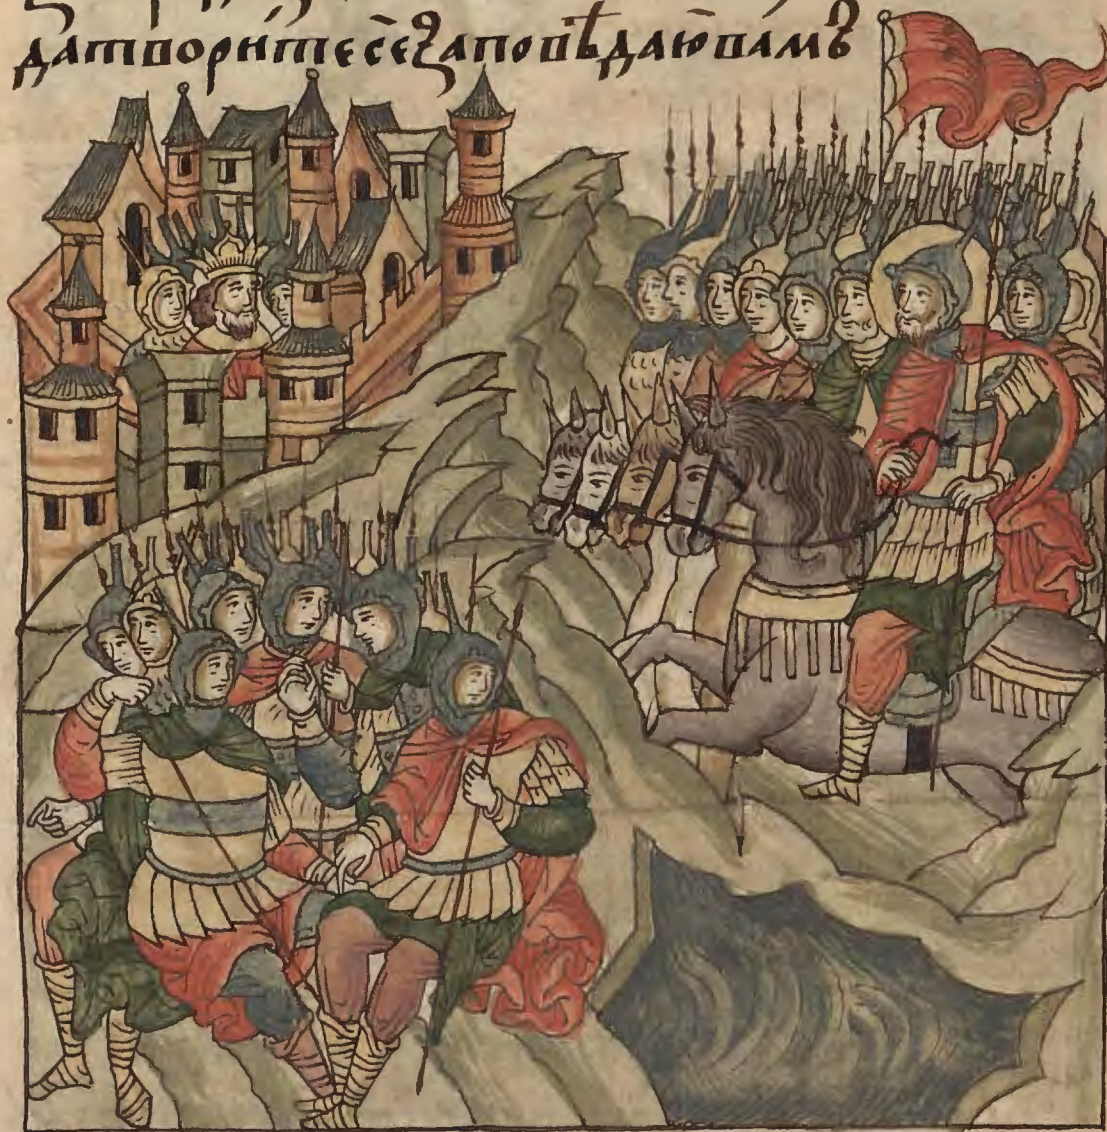 да творите се ꙁаповѣдаю вамъ